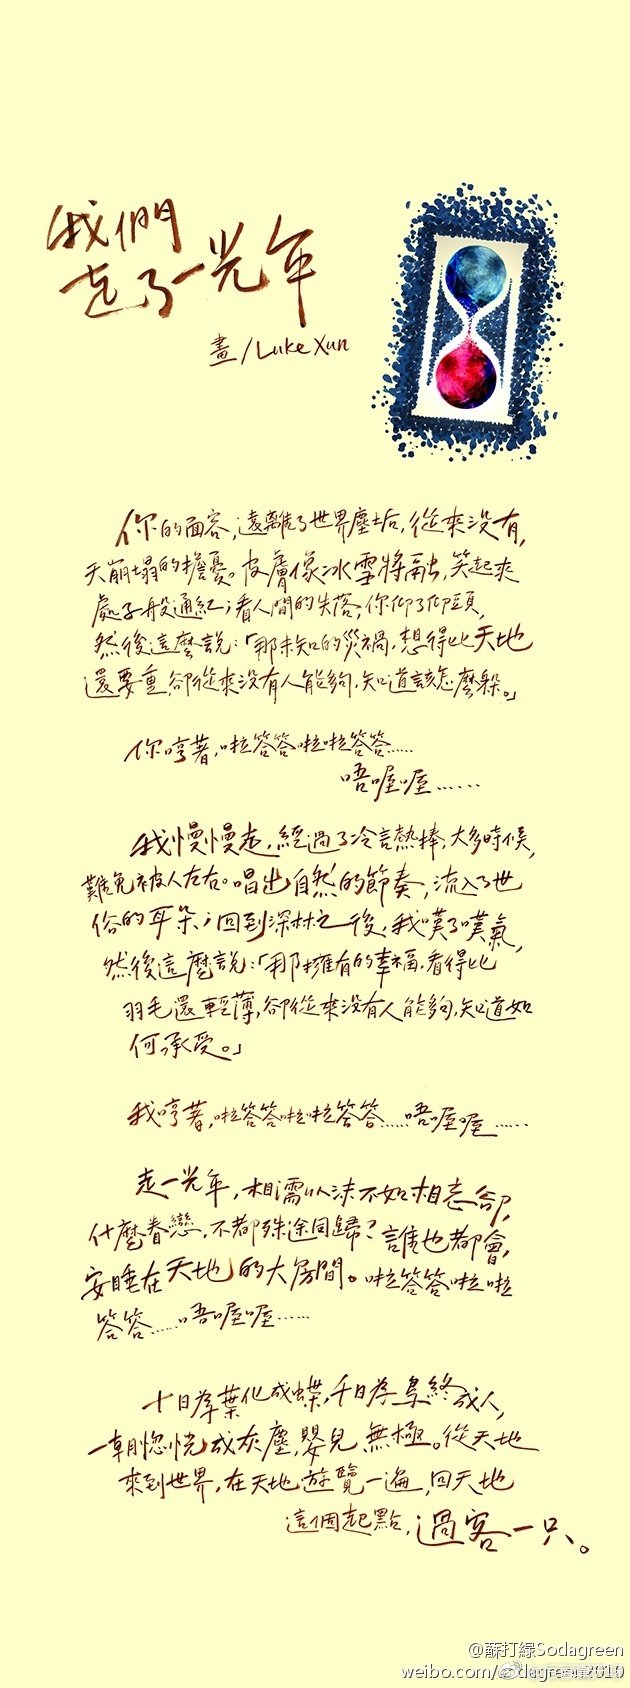 我們
走了一光年
畫/Luke Xun
你的面容,遠離了世界塵垢,從來沒有,
天崩塌的擔憂。皮膚像冰雪將融,笑起來
處子般通紅;看人間的失落,你仰了仰頭,
然後這麼說:「那未知的災禍,想得比天地
還要重,卻從來沒有人能夠,知道該怎麼躲。」
你哼著,啦答答啦啦答答……
唔喔喔……
我慢慢走,經過了冷言熱棒,大多時候,
難免被人左右。唱出自然的節奏,流入了世
俗的耳朵;回到深林之後,我嘆了嘆氣,
然後這麼說:「那擁有的幸福,看得比
羽毛還輕薄,卻從來沒有人能夠,知道如
何承受。」
我哼著,啦答答啦啦答答……唔喔喔……
走一光年,相濡以沫不如相忘卻,
什麼眷戀,不都殊途同歸?誰也都會,
安睡在天地的大房間。啦答答啦啦
答答……唔喔喔……
十日為葉化成蝶,千日為鳥終成人,
一朝惚恍成灰塵,嬰兒無極。從天地
來到世界,在天地遊覽一遍,回天地
這個起點,過客一只。
@蘇打綠Sodagreen
weibo.com/sodagreen2010